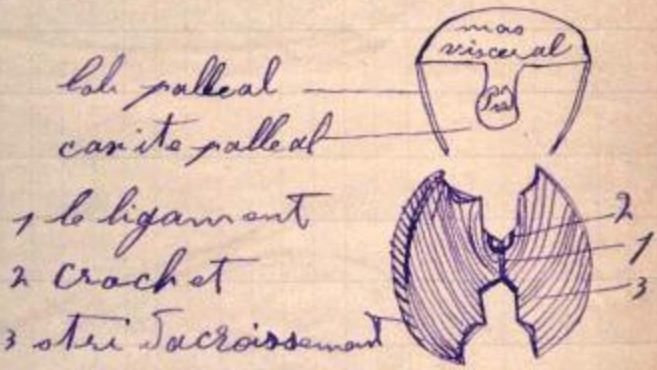 mas
visceral
lob palleal
Pie
cavite palleal
1 le ligament
2
2 Crochet
1
3
3 stri d'acroissement